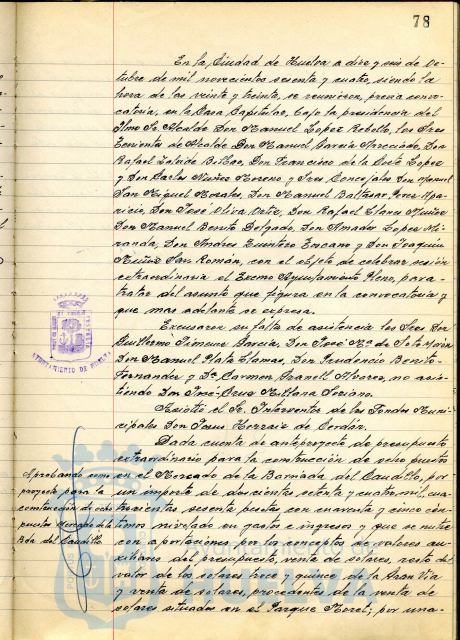 78
En la Ciudad de Huelva a diez y seis de Oc-
tubre de mil novecientos sesenta y cuatro, siendo la
hora de las veinte y treinta, se reunieron, previa convo-
catoria, en la Casa Capitular, bajo la presidencia del
Iltmo Sr. Alcalde Don Manuel Lopez Rebollo, los Sres
Tenientes de Alcalde Don Manuel Garcia Apreciado, Don
Rafael Zalvide Bilbao, Don Francisco de la Corte Lopez
y Don Carlos Nuñez Moreno y Sres Concejales Don Manuel
San Miguel Morales, Don Manuel Baltasar Apa-
ricio, Don José Oliva Ortiz, Don Rafael Muñoz,
Don Manuel Benito Delgado, Don Amador Lopez Mi-
randa, Don Andres Quintero Lozano y Don Joaquin
Muñoz San Román, con el objeto de celebrar sesión
extraordinaria el Excmo Ayuntamiento Pleno, para
tratar del asunto que figura en la convocatoria y
que mas adelante se expresa.
Excusaron su falta de asistencia los Sres Don
Guillermo Jimenez Garcia, Don José Mª de Soto
Don Manuel Plata Llamas, Don Prudencio Benito
Fernandez y Dª Carmen Alvarez, no asis-
tiendo Don José-Cruz Soriano.
Asistió el Sr. Interventor de los Fondos Muni-
cipales Don Jesus Herraiz de Cerdán.
Dada cuenta de anteproyecto de presupuesto
extraordinario para la construcción de ocho puestos
en el Mercado de la Barriada del Caudillo, por
un importe de doscientas setenta y cuatro mil, cua-
trocientas sesenta pesetas con cuarenta y cinco cén-
timos nivelado en gastos e ingresos y que se nutre
con aportaciones por los conceptos de valores au-
xiliares del presupuesto, venta de solares, resto del
valor de los solares trece y quince de la Gran Vía
y venta de solares, procedentes de la venta de
solares situados en el Parque Moret; por una-
Aprobando
proyecto para la
construcción de ocho
puestos Mercado de la
Bda del Caudillo
AYUNTAMIENTO DE HUELVA
Ayuntamiento de
HUELVA